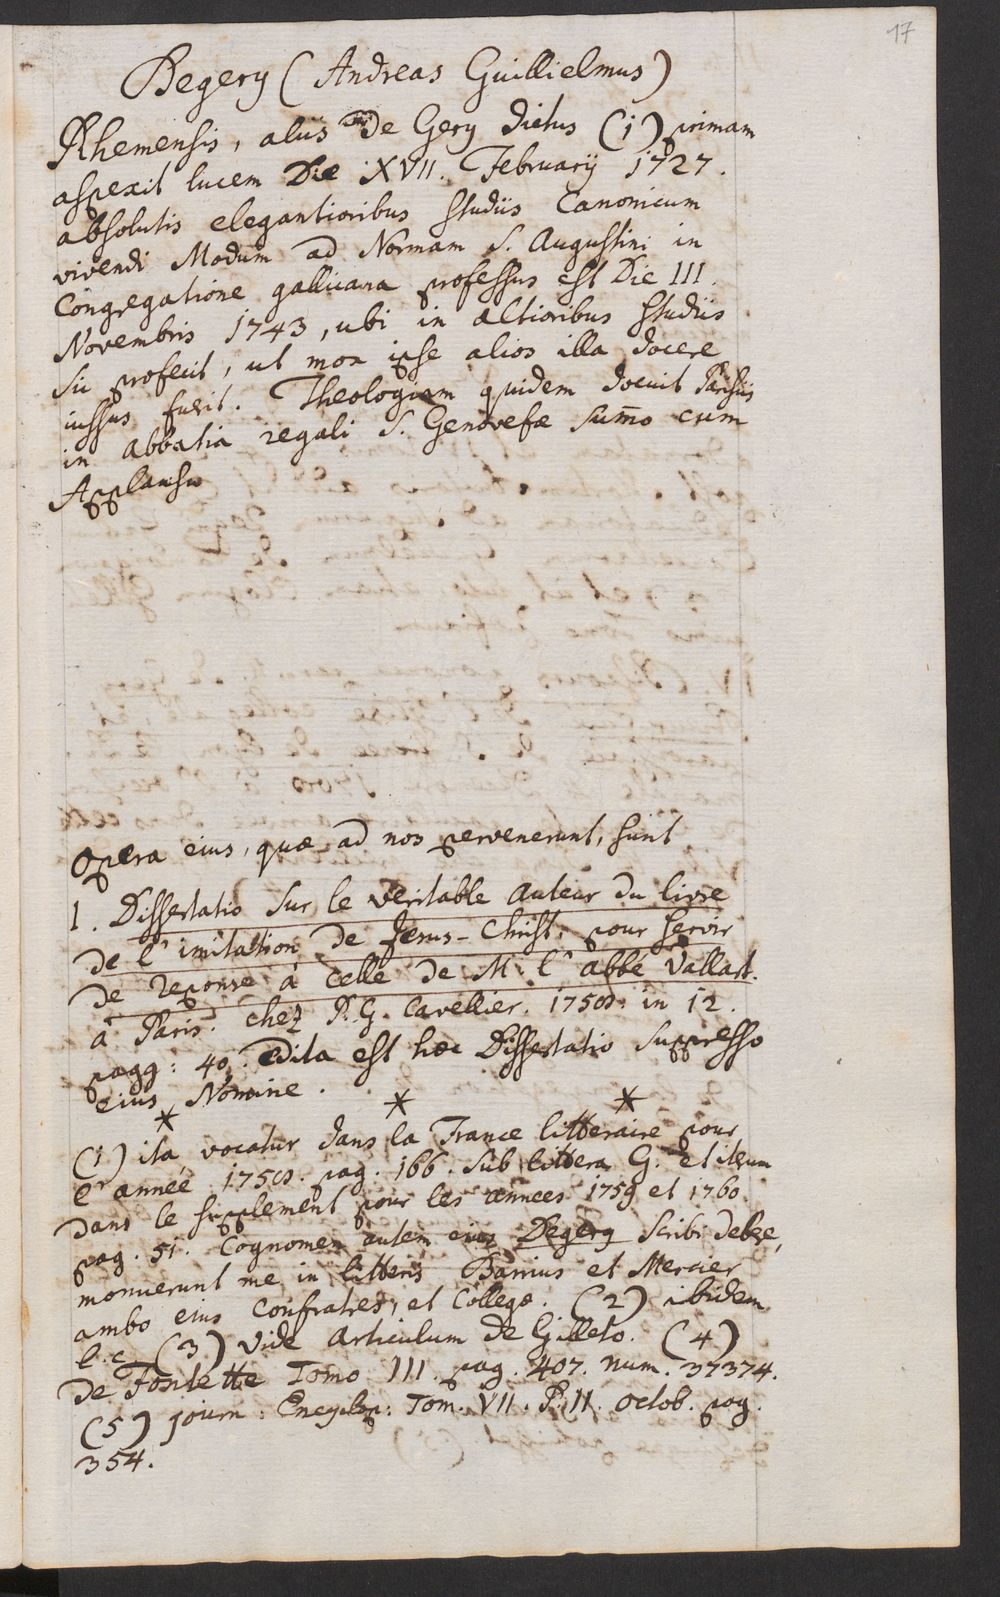 17
Begery (Andreas Guillielmus)
Rhemensis, aliis De Gery dictus (1) primam
aspexit lucem Die XVII. Februarij 1727.
absolutis elegantioribus studiis Canonicum
vivendi Modum ad Normam S. Augustini in
Congregatione gallicana professus est Die III.
Novembris 1743, ubi in altioribus studiis
sic profecit, ut mox ipse alios illa docere
iussus fuerit. Theologiam quidem docuit Parisiis
in abbatia regali S. Genovefæ summo cum
Applausu
Opera eius, quæ ad nos pervenerunt, sunt
1. Dissertatio sur le veritable auteur du livre
de l'imitation de Jesus-Christ, pour servir
de reponse à celle de M. l'abbé Vallart.
à Paris. chez P. G. Cavellier. 1758. in 12.
pagg: 40. Edita est hæc Dissertatio suppresso
eius Nomine.
* * *
(1) ita vocatur dans la France litteraire pour
l'année 1758. pag. 166. sub littera G. et iterum
dans le supplement pour les années 1759 et 1760
pag. 51. Cognomen autem eius Begery scribi debere,
monuerunt me in litteris Barrius et Mercier
ambo eius confratres, et Collegæ. (2) ibidem
l. c. (3) Vide articulum de Gilleto. (4)
de Fontette Tomo III. pag. 407. num. 37374.
(5) Journ: Encyclop: Tom. VII. P. II. octob. pag.
354.